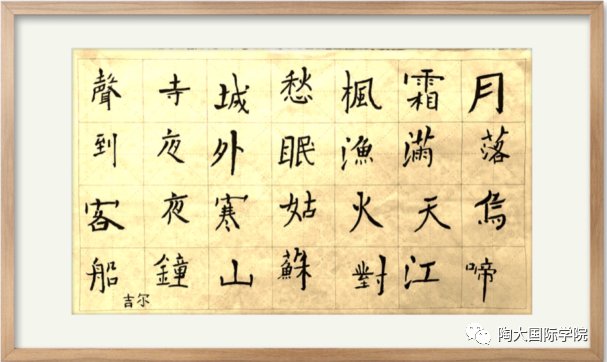 月落烏啼
霜滿天江
楓漁火對
愁眠姑蘇
城外寒山
寺夜夜鐘
聲到客船
吉尔
陶大国际学院